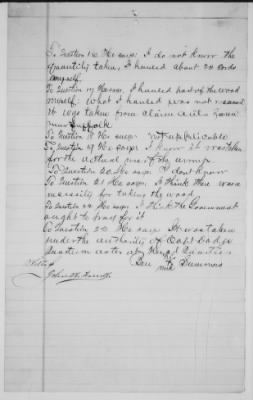 To Question 16 He says I do not know the
quantity taken, I hauled about 20 Cords
myself.
To Question 17 He says, I hauled part of the wood
myself. What I hauled was not measured
It was taken from claimants
near Suffolk
To Question 18 He says not applicable
To Question 19 He says I know it was taken
for the actual use of the army
To Question 20 He says I dont know
To Question 21 He says I think there was a
necessity for taking the wood
To Question 22 He says I think the Government
ought to pay for it
To Question 22 He says It was taken
under the authority of Capt Dodge
Quarter Master at Head Quarters
mark